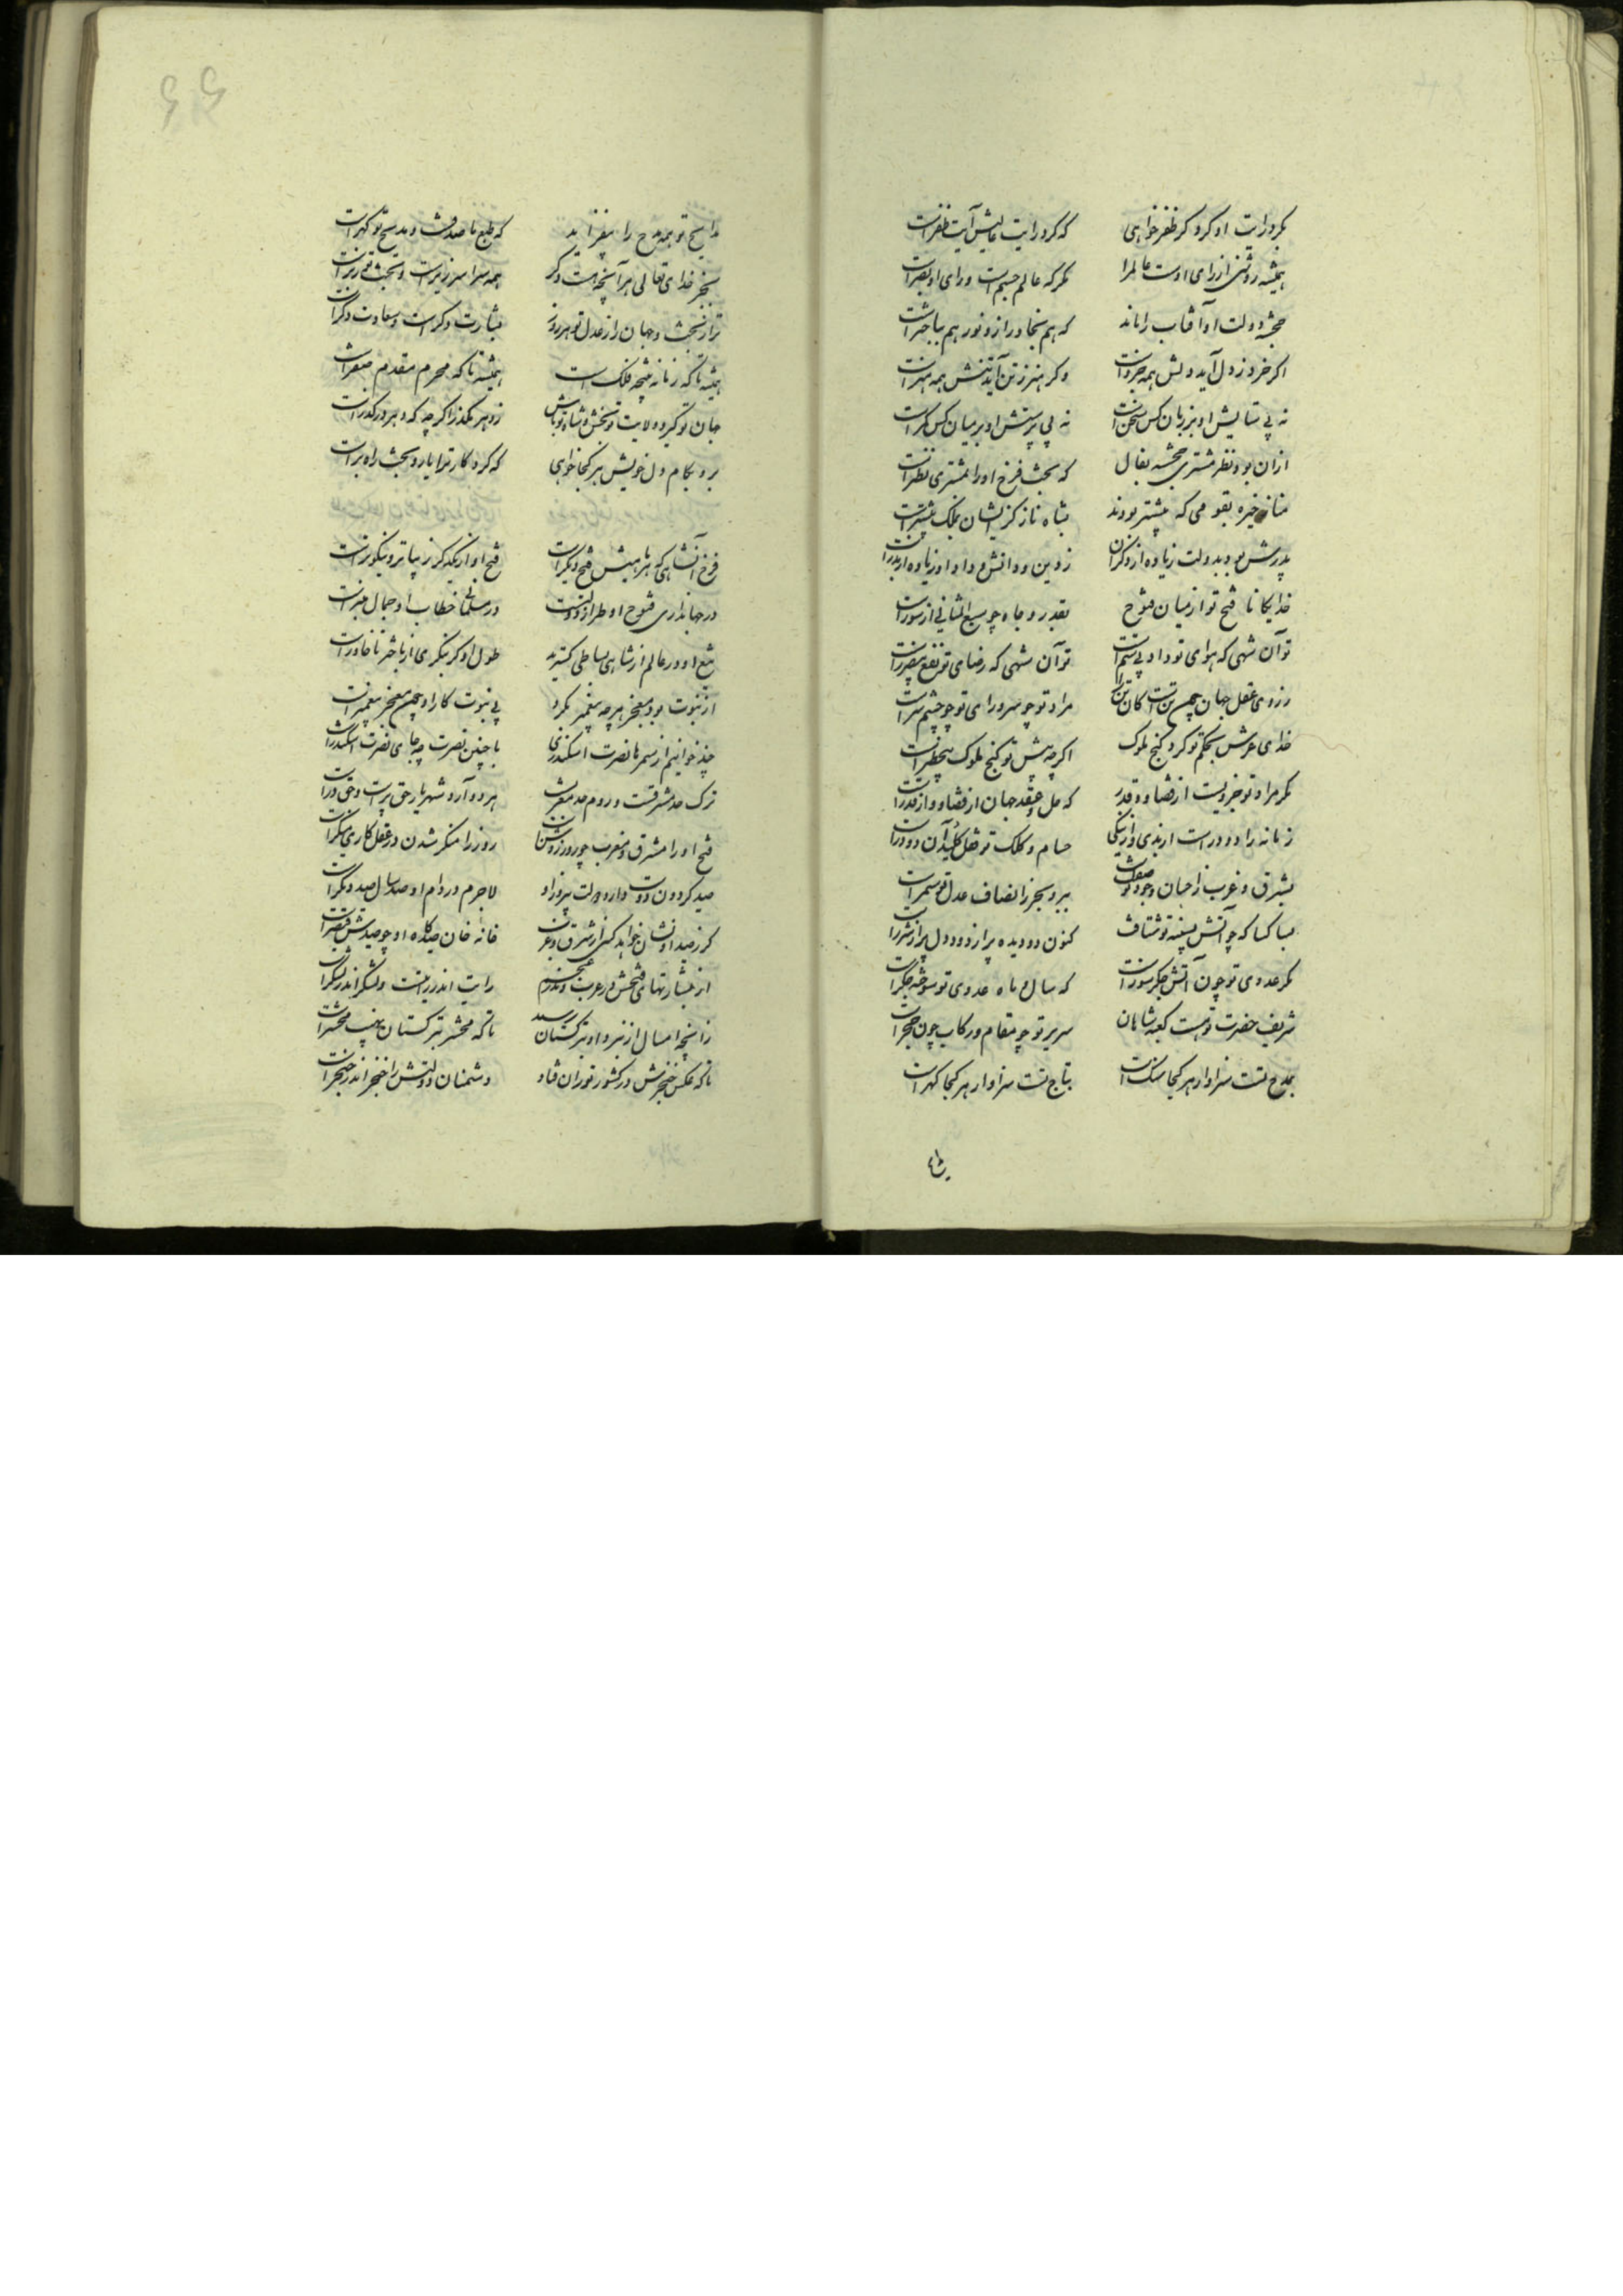 بگرد رایت او گرد گر ظفر خواهی که گرد رایت عالیش آیت ظفر است
همیشه روشنی از رای اوست عالم را مگر که عالم جسم است و رای او بصر است
خجسته دولت او آفتاب را ماند که هم بخاور ازو نور هم بباختر است
اگر خرد ز دل آید دلش همه خرد است وگر هنر ز تن آید تنش همه هنر است
نه بی ستایش او بر زبان کس سخن است نه بی پرستش او بر میان کس کمر است
از آن بود نظر مشتری خجسته بفال که بخت فرخ او را بمشتری نظر است
مناز خیره بقومی که پیشتر بودند بشاه ناز کز ایشان بملک بیشتر است
پدرش بود بدولت زیاده از دگران ز دین و دانش و داد او زیاده از پدر است
خدایگانا فتح تو از میان فتوح بقدر و جاه چو سبع المثانی از سور است
تو آن شهی که هوای تو داد بی ستم است تو آن شهی که رضای تو نفع بی ضرر است
ز روی عقل جهان چون تن است کان تن را مراد تو چو سر و رای تو چو چشم سر است
خدای عرش بحکم تو کرد گنج ملوک اگرچه پیش تو گنج ملوک بی خطر است
مگر مراد تو خیریست از قضا و قدر که حل و عقد جهان از قضا و از قدر است
زمانه را دو در است از بدی و از نیکی حسام و کلک تو قفل و کلید آن دو در است
بشرق و غرب ز احسان وجود تو صفت است ببر و بحر ز انصاف عدل تو سمر است
بسا کسا که چو آتش بکینه تو شتافت کنون دو دیده پر از دود و دل پر از شرر است
مگر عدوی تو چون آتش جگر سوز است که سال و ماه عدوی تو سوخته جگر است
شریف حضرت تو هست کعبه شاهان سریر تو چو مقام و رکاب چون حجر است
بمدح تست سزاوار هر کجا سخن است بتاج تست سزاوار هر کجا گهر است
مدایح تو همه مدح را بیفزاید که طبع ما صدفست و مدیح تو گهر است
بجز خدای تعالی هر آنچه هست دگر همه سراسر زیر است و بخت تو زبر است
ترا ز بخت و جهان را ز عدل تو هر روز بشارت دگر است و سعادت دگر است
همیشه تا که زمانه نتیجه فلک است همیشه تا که محرم مقدم صفر است
جهان تو گیر و ولایت تو بخش و شاه تو باش ز دهر مگذر اگرچه که دهر در گذر است
برو بکام دل خویش هر کجا خواهی که کردگار ترا یار و بخت راهبر است
فرخ آن شاهی که هر ماهیش فتح دیگر است فتح او از یکدگر زیباتر و نیکوتر است
در جهانداری فتوح او طراز دولت است در مسلمانی خطاب او جمال منبر است
تیغ او در عالم از شاهی بساطی گسترید طول او گر بنگری از باختر تا خاور است
از نبوت بود معجز هرچه پیغمبر بکرد بی نبوت کار او چون معجز پیغمبر است
چند خوانیم از سمرها نصرت اسکندری با چنین نصرت چه جای نصرت اسکندر است
ترک حد مشرقست و روم حد مغرب است هر دو آرد شهریار حق پرست و حق ور است
فتح او را مشرق و مغرب چو روز روشن است روز را منکر شدن در عقل کاری منکر است
صید کردون دوست دارد دولت پیروز او لاجرم در دام او صد سال صید دیگر است
گر ز صید او نشان خواهد کسی از شرق و غرب خانه خان صیدگاه او چو صیدش قیصر است
از بشارتهای فتحش در عرب و ندر عجم رایت اندر رایت و لشکر اندر لشکر است
ز آنچه امسال از نبرد او بترکستان رسید تا گه محشر بترکستان نهیب محشر است
تا که عکس خنجرش در کشور توران فتاد دشمنان دولتش را خنجر اندر حنجر است